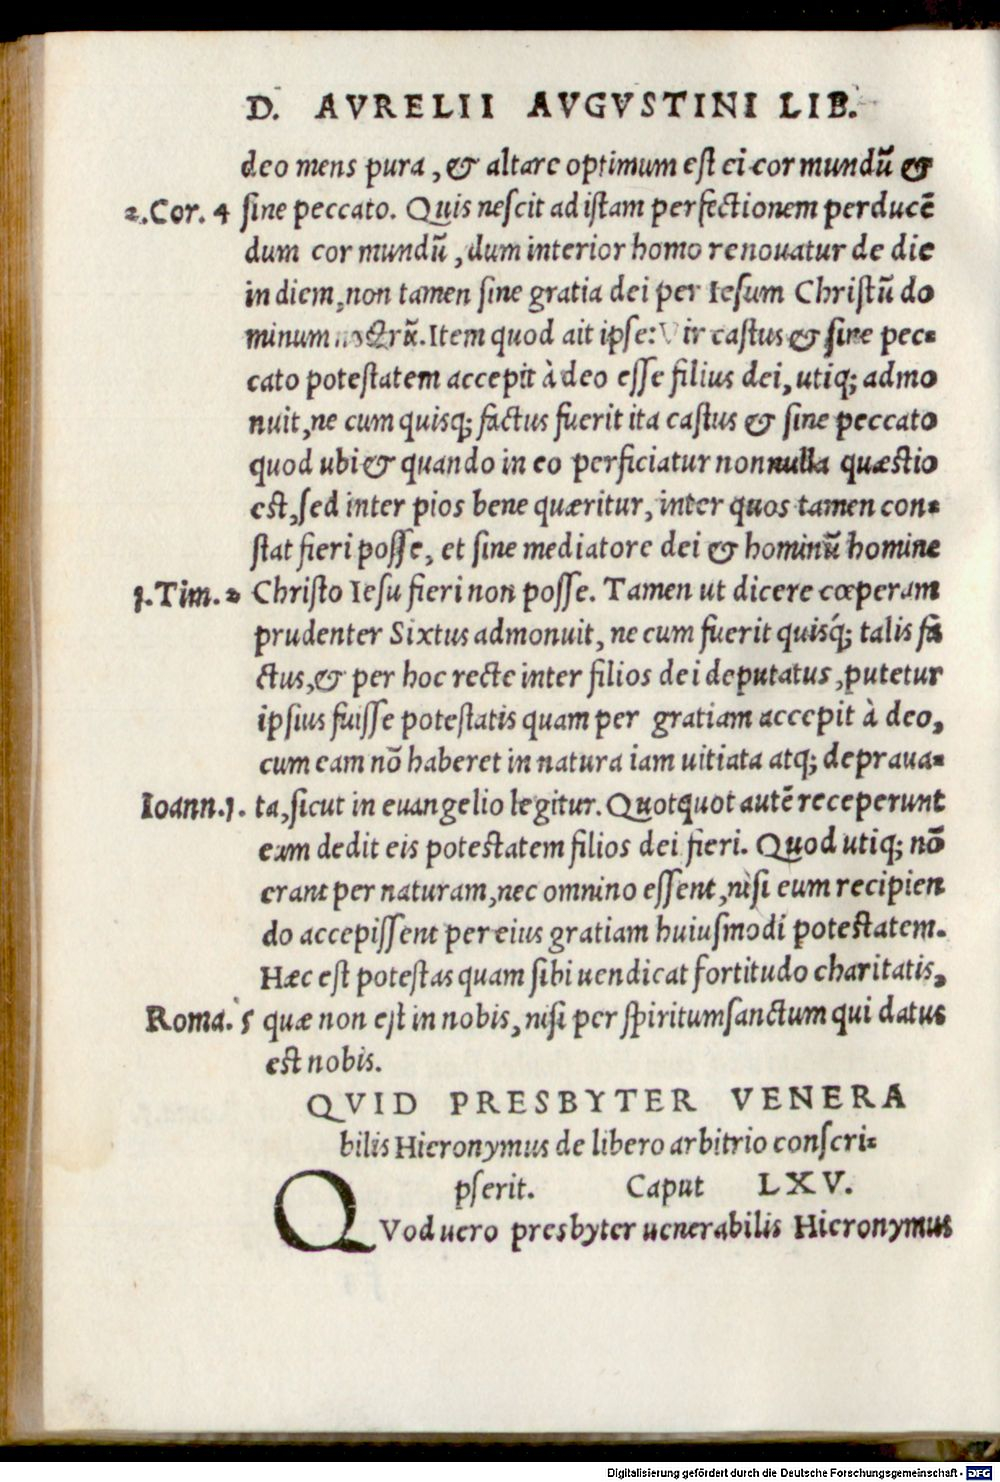 D. AVRELII AVGVSTINI LIB.
deo mens pura, & altare optimum est ei cor mundū &
2.Cor. 4 sine peccato. Quis nescit ad istam perfectionem perducē
dum cor mundū, dum interior homo renouatur de die
in diem, non tamen sine gratia dei per Iesum Christū do
minum nostrū. Item quod ait ipse: Vir castus & sine pec=
cato potestatem accepit à deo esse filius dei, utiq; admo
nuit, ne cum quisq; factus fuerit ita castus & sine peccato
quod ubi & quando in eo perficiatur nonnulla quæstio
est, sed inter pios bene quæritur, inter quos tamen con=
stat fieri posse, et sine mediatore dei & hominū homine
1.Tim. 2 Christo Iesu fieri non posse. Tamen ut dicere cœperam
prudenter Sixtus admonuit, ne cum fuerit quisq́; talis fa
ctus, & per hoc recte inter filios dei deputatus, putetur
ipsius fuisse potestatis quam per gratiam accepit à deo,
cum eam nō haberet in natura iam uitiata atq; depraua=
Ioann.1. ta, sicut in euangelio legitur. Quotquot autē receperunt
eum dedit eis potestatem filios dei fieri. Quod utiq; nō
erant per naturam, nec omnino essent, nisi eum recipien
do accepissent per eius gratiam huiusmodi potestatem.
Hæc est potestas quam sibi uendicat fortitudo charitatis,
Roma. 5 quæ non est in nobis, nisi per spiritumsanctum qui datus
est nobis.
QVID PRESBYTER VENERA
bilis Hieronymus de libero arbitrio conscri=
pserit. Caput LXV.
QVod uero presbyter uenerabilis Hieronymus
Digitalisierung gefördert durch die Deutsche Forschungsgemeinschaft - DFG